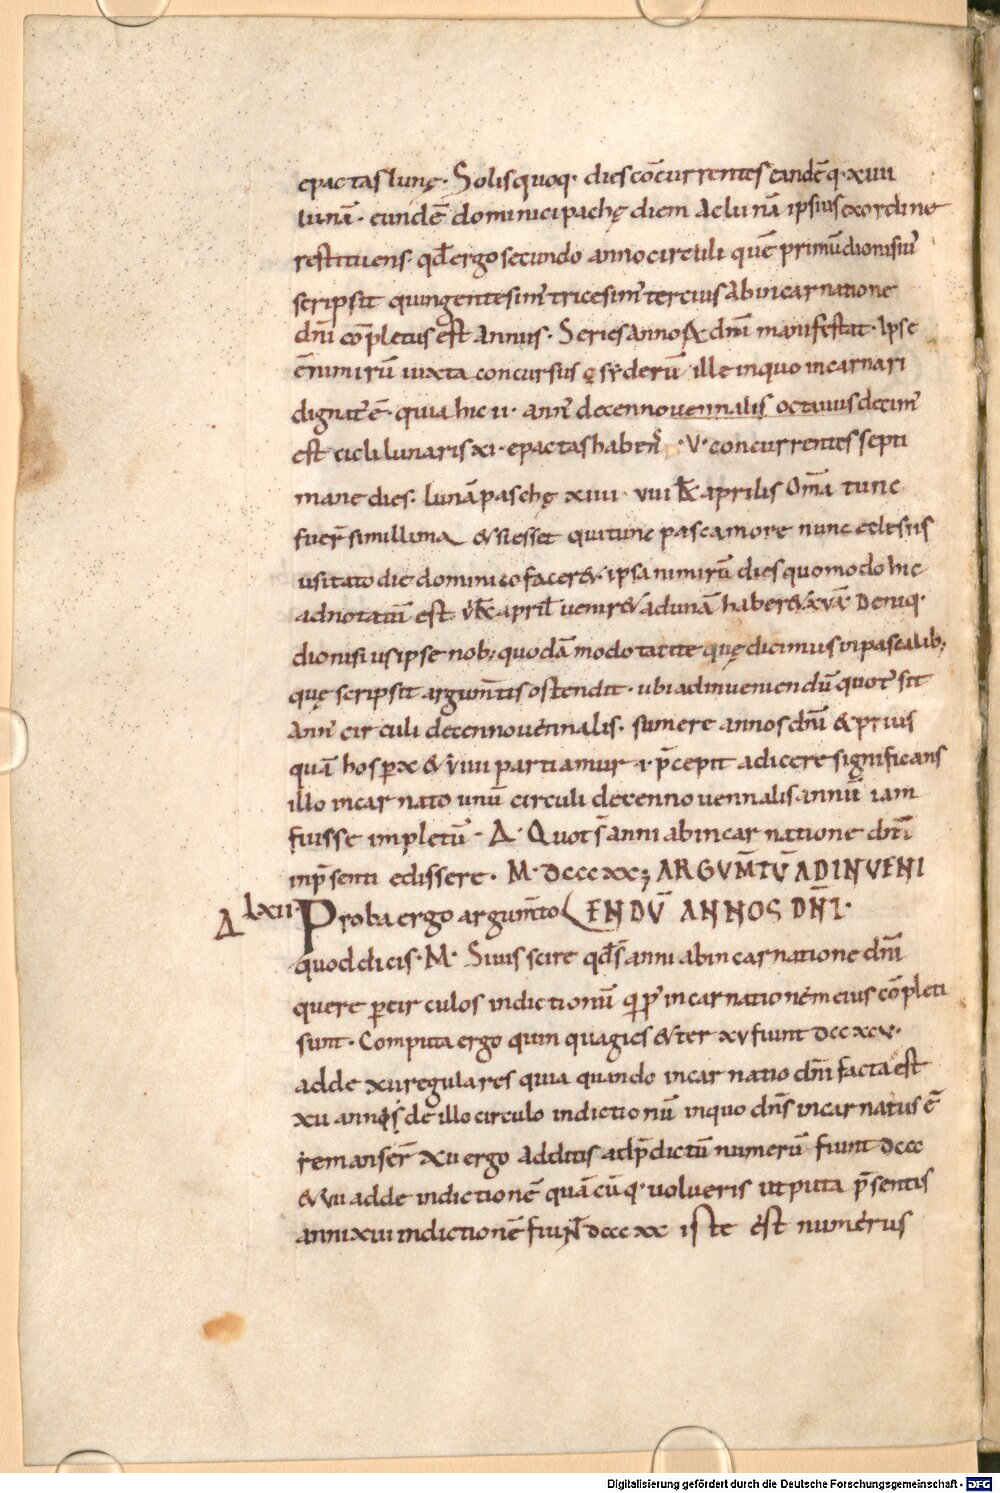 epactas lunę · Solis quoq· dies co̅currentes eande̅q· xiiii
luna̅ · eunde̅ dominici pachę diem ac luna̅ ipsius ex ordine
restituens · qd̅ ergo secundo anno circuli que̅ primu̅ dionisiu̅
scripsit quingentesim̅ tricesim̅ tercius ab incarnatione
dn̅i co̅pletus est annus · Series anno℞ dn̅i manifestat · Ipse
e̅ nimiru̅ iuxta concursus syderu̅ ille in quo incarnari
dignat᷒ e̅ · quia hic ii · ann᷒ decennouennalis octauus decim᷒
est cicli lunaris xi · epactas haben᷒ · V · concurrentes septi
mane dies · luna̅ paschę xiiii · viii kł aprilis Om̅a tunc
fuer̅ simillima & si esset qui tunc pasca more nunc eclesiis
usitato die dominico facer& · ipsa nimiru̅ dies quomodo hic
adnotatu̅ est vi kł april̅ uenir& ac luna̅ haber& xva̅ Deniq·
dionisius ipse nob; quoda̅ modo tacite quę dicimus in pascalib;
quę scripsit argum̅tis ostendit · ubi ad inueniendu̅ quot᷒ sit
ann᷒ circuli decennouennalis · sumere annos dn̅i & prius
qua̅ hos p̲ x & viiii partiamur · i · p̅cepit adicere significans
illo incarnato unu̅ circuli decennouennalis annu̅ iam
fuisse impletu̅ · Δ · Quot s̅ anni ab incarnatione dn̅i
inp̅senti edissere · M · dcccxx; ARGVM̅TV̅ AD INVENI
Δ lxii · Proba ergo argum̅to ENDV̅ ANNOS DN̅I ·
quod dicis · M · Si uis scire qd̅ s̅ anni ab incarnatione dn̅i
quere p̲ circulos indictionu̅ qi p᷒ incarnationem eius co̅pleti
sunt · Computa ergo quinquagies & ter xv fiunt dccxcv ·
adde xii regulares quia quando incarnatio dn̅i facta est
xii annos de illo circulo indictionu̅ in quo dn̅s incarnatus e̅
remanser̅ xii ergo additis ad p̅dictu̅ numeru̅ fiunt dccc
& vii adde indictione̅ qua̅cu̅q· uolueris ut puta p̅sentis
anni xiii indictione̅ fiun̅ dcccxx iste est numerus
Digitalisierung gefördert durch die Deutsche Forschungsgemeinschaft · DFG